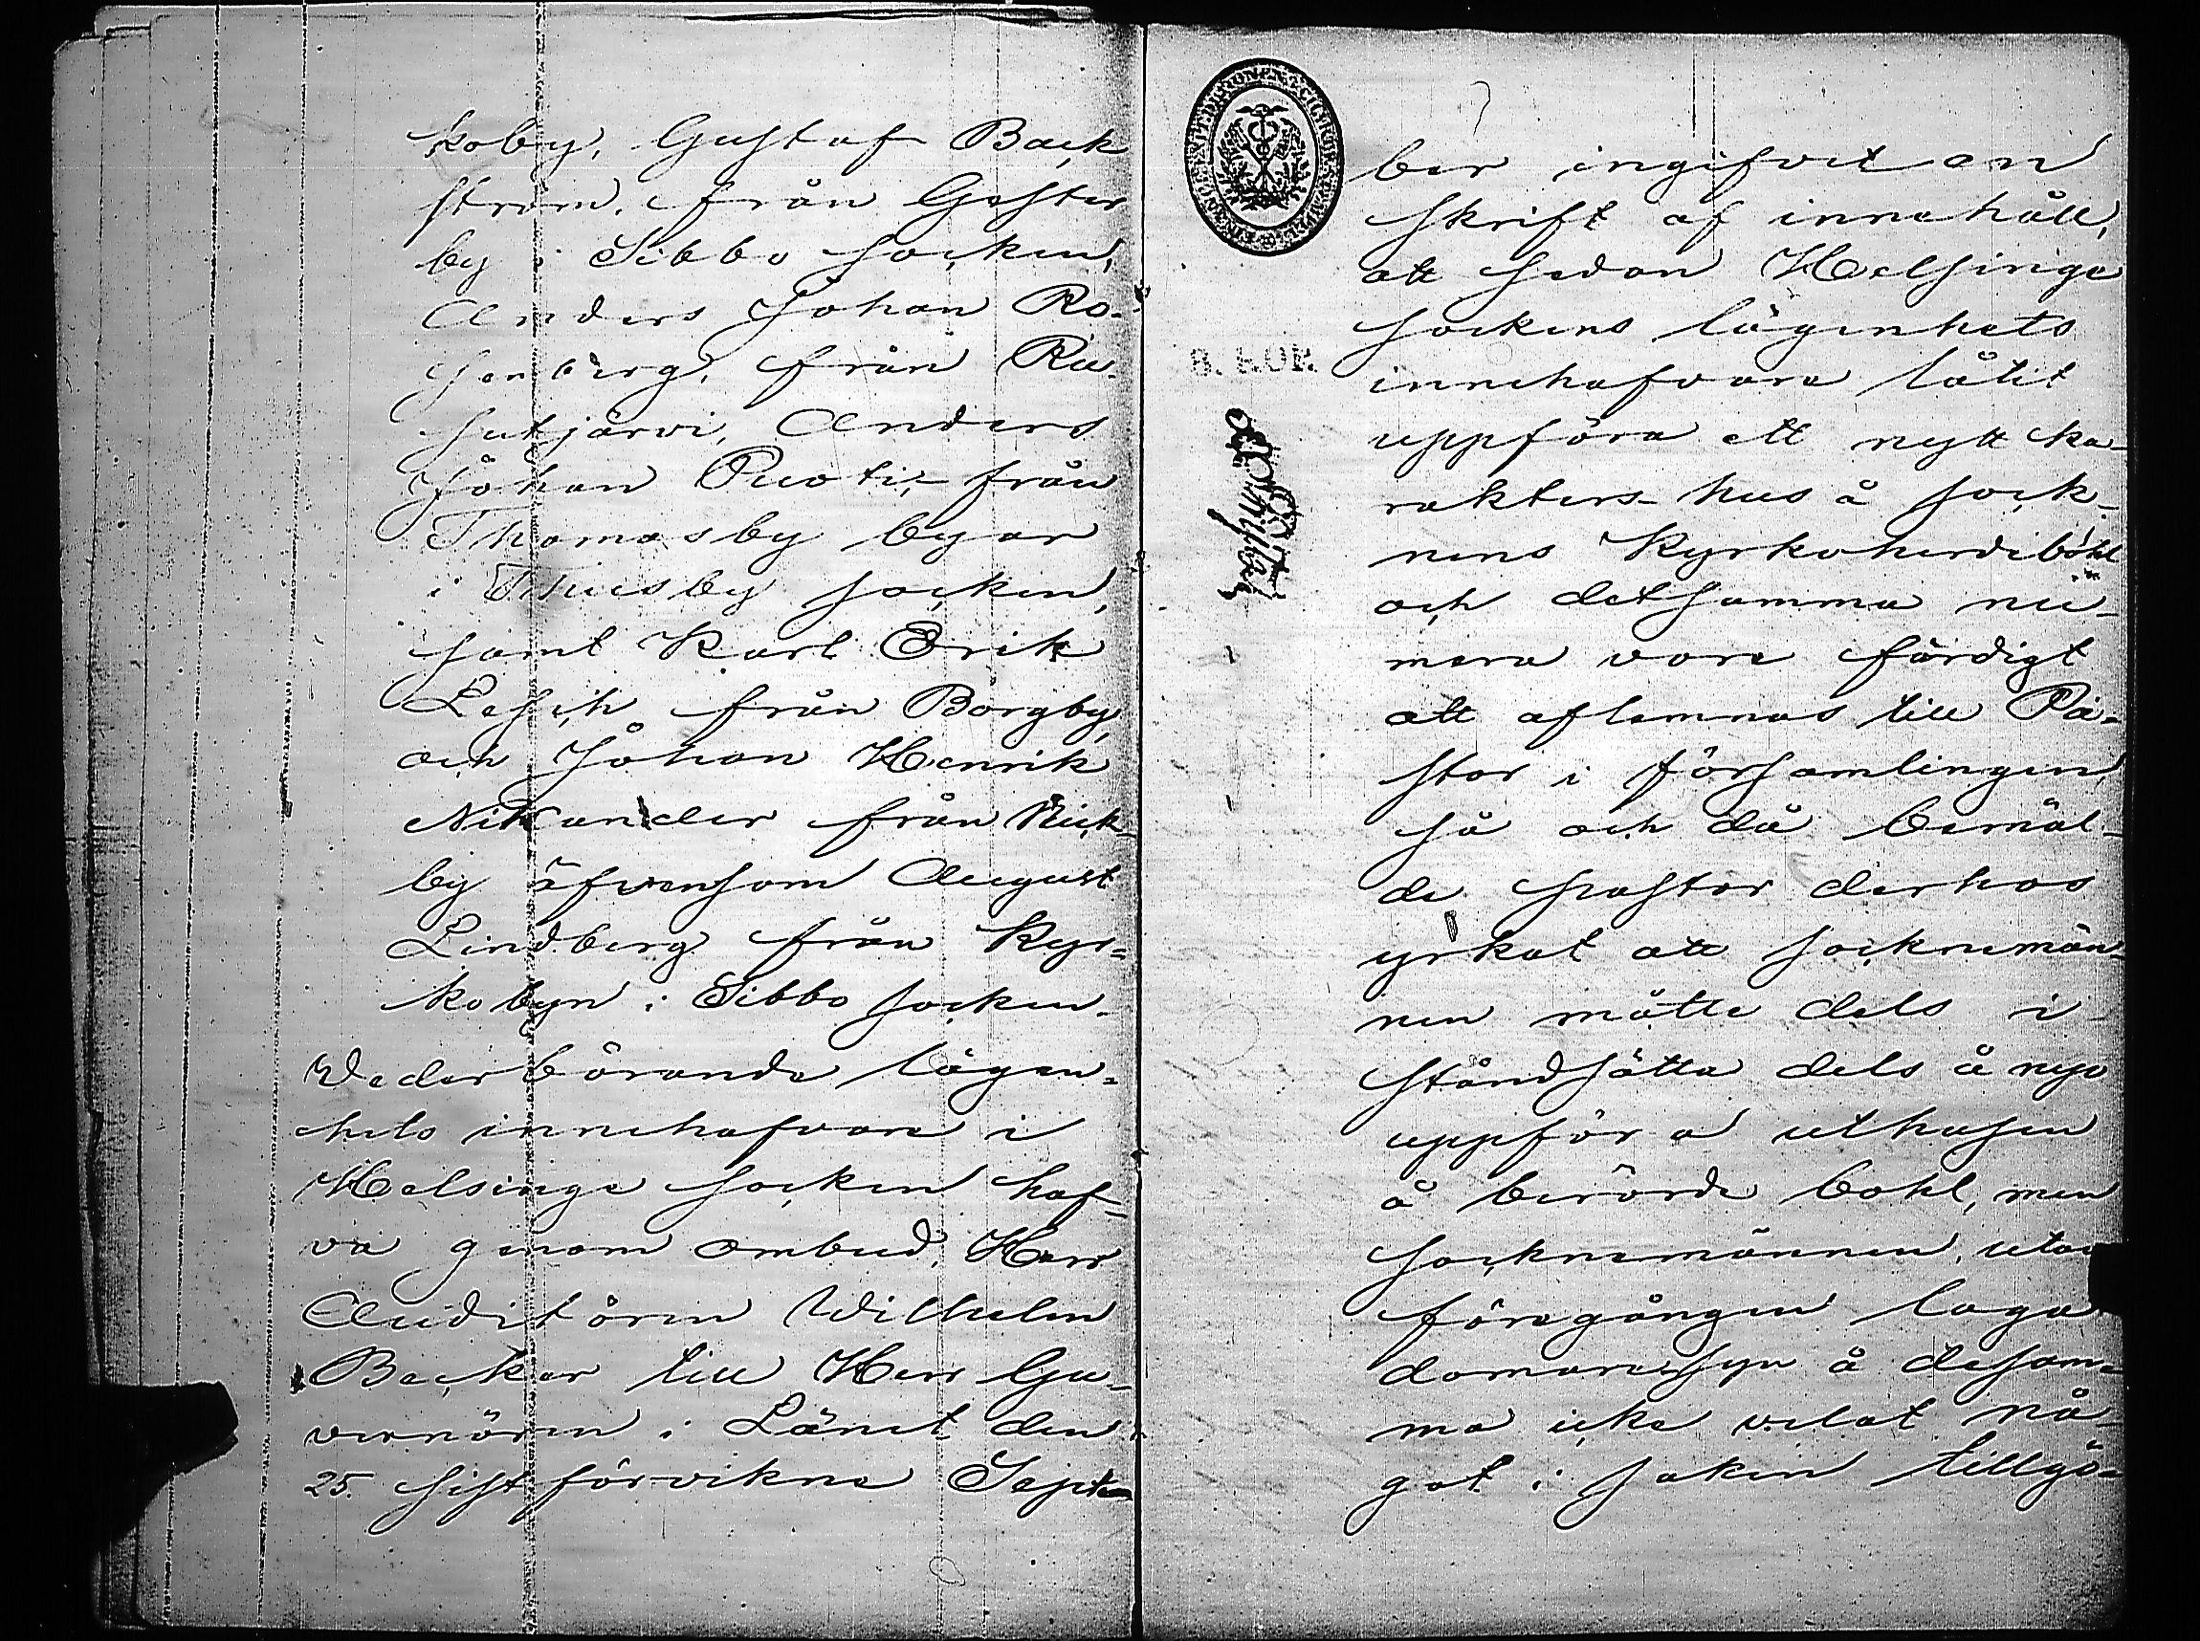 koby, Gustaf Back
ström, från Gester
by i Sibbo socken,
Anders Johan Ro-
senberg, från Ru-
sutjärvi, Anders
Johan Puoti, från
Thomasby byar
i Thusby socken,
samt Karl Erik
från Borgby,
och Johan Henrik
Nikander från Nick-
by äfvensom August
Lindberg från Kyr-
kobyn i Sibbo socken.
Vederbörande lägen-
hets innehafvare i
Helsinge socken haf-
va genom ombud, Herr
Auditören Wilhelm
Backer till Herr Gu-
vernören i Länet den
25. sistförvikne Septem
ber ingifvit an
skrift af innehåll,
att sedan Helsinge
sockens lägenhets
innehafvare låtit
uppföra ett nytt ka-
rakters-hus å sock-
nens Kyrkoherdebohl
och detsamma nu-
mera vore färdigt
att aflemnas till Pa-
stor i församlingen,
så och då bemäl-
de pastor derhos
yrkat att socknemän-
nen måtte dels i-
ståndsätta dels å nyo
uppföra uthusen
å berörde bohl, men
socknemännen, utan
föregången laga
domaresyn å desam-
ma icke velat nå-
got i saken tillgö-